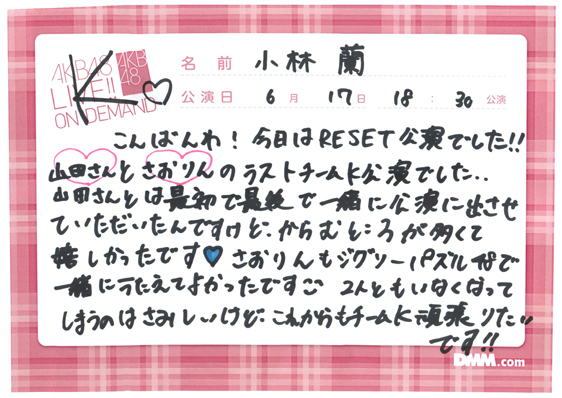 AKB48
LIVE!!
ON DEMAND
AKB
48
K
名前 小林 蘭
公演日 6月 17日 18:30 公演
こんばんわ！今日はRESET公演でした!!
山田さんとさおりんのラストチームK公演でした..
山田さんとは最初で最後で一緒に公演に出させ
ていただいたんですけど、からむところが多くて
嬉しかったです♥ さおりんもジグソーパズル48で
一緒にうたえてよかったです 2人ともいなくなって
しまうのはさみしいけど、これからもチームK頑張りたい
です!!
DMM.com